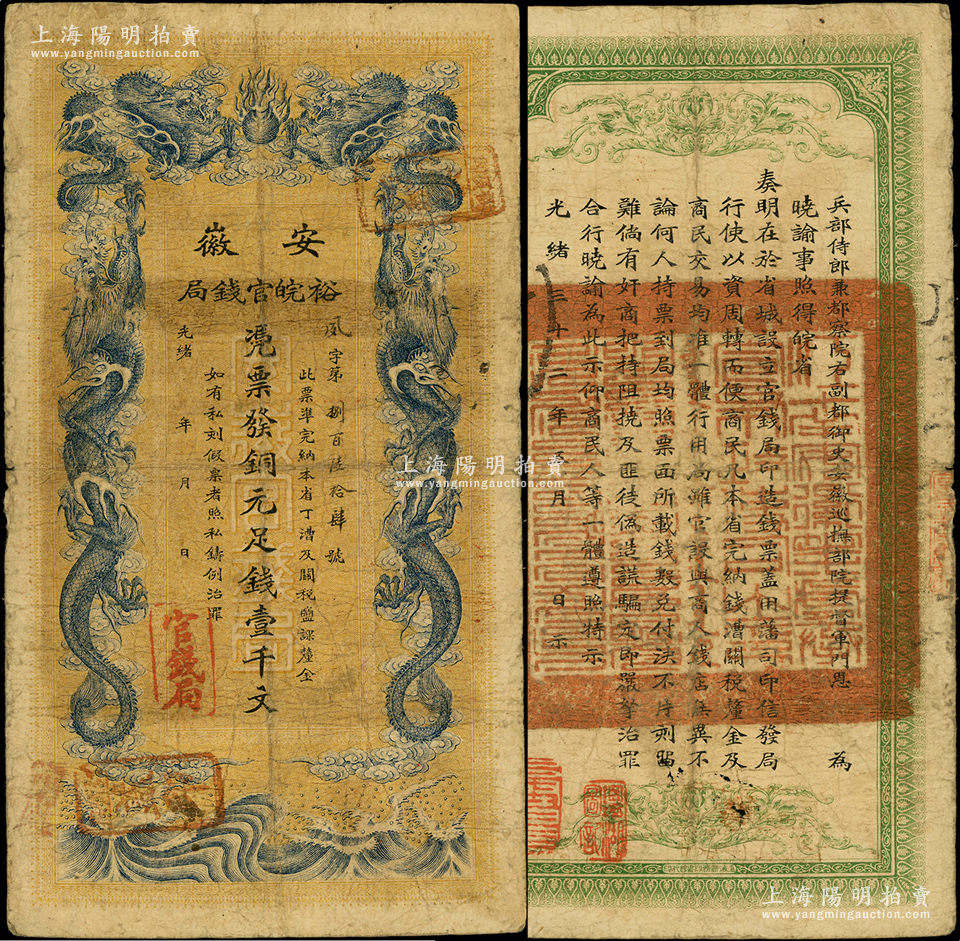 上海陽明拍賣
www.yangmingauction.com
安徽
裕皖官錢局
鳳字第捌百陸拾肆號
此票準完納本省丁漕及關稅鹽課釐金
憑票發銅元足錢壹千文
如有私刻假票者照私鑄例治罪
光緒 年 月 日
官錢局
兵部侍郎兼都察院右副都御史安徽巡撫部院提督軍門恩 為
曉諭事照得皖省
奏明在於省城設立官錢局印造錢票蓋用藩司印信發局
行使以資周轉而便商民凡本省完納錢漕關稅釐金及
商民交易均准一體行用局雖官設與商人錢店無異不
論何人持票到局均照票面所載錢數兌付決不片刻留
難倘有奸商把持阻撓及匪徒偽造誆騙定即嚴拏治罪
合行曉諭為此示仰商民人等一體遵照特示
光緒三十二年 月 日示
上海陽明拍賣
www.yangmingauction.com
上海陽明拍賣
www.yangmingauction.com